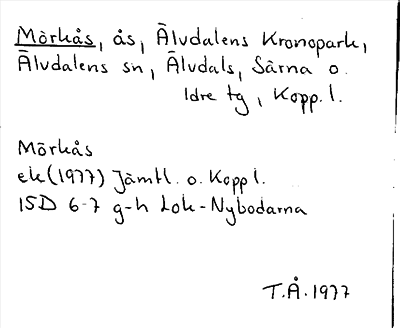 Mörkås, ås, Älvdalens Kronopark,
Älvdalens sn, Älvdals, Särna o.
Idre tg, Kopp. l.
Mörkås
ek (1977) Jämtl. o. Kopp l.
15D 6-7 g-h Lok-Nybodarna
T.Å. 1977